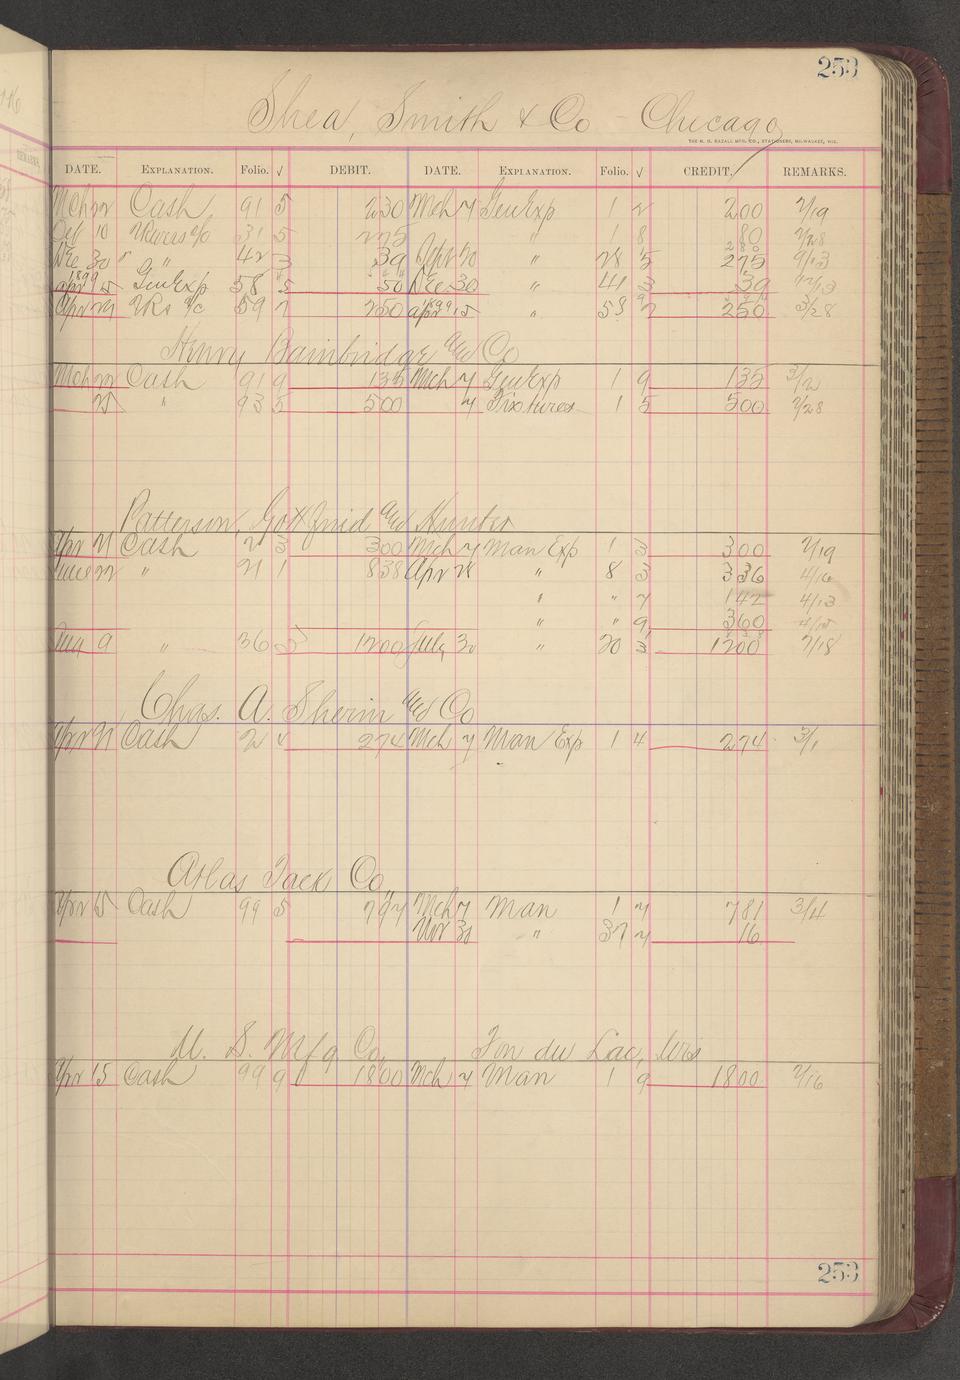 253
Shea, Smith & Co - Chicago
THE H. H. WEST MFG. CO., STATIONERS, MILWAUKEE, WIS.
DATE. EXPLANATION. Folio. √ DEBIT. DATE. EXPLANATION. Folio. √ CREDIT. REMARKS.
Mch 22 Cash 91 5 230 Mch 7 Gen Exp 1 2 200 2/19
Oct 10 31 5 275 " 1 8 80 2/28
280
Dec 30 " " 42 3 39 Apr 20 " 28 5 275 9/13
1899
Apr 15 Gen Exp 58 5 50 Dec 30 " 41 3 39
1899
Apr 29 59 7 250 Apr 15 " 58 7 250 3/28
Henry Bainbridge and Co
Mch 22 Cash 91 9 135 Mch 7 Gen Exp 1 9 135 3/2
25 " 93 5 500 7 Fixtures 1 5 500 2/28
Patterson, Gottfried and Hunter
Apr 21 Cash 2 3 300 Mch 7 Man Exp 1 3 300 2/19
June 22 " 21 1 838 Apr 28 " 8 3 336 4/16
" " 7 142 4/13
" " 9 360
Aug 9 " 36 3 1200 July 30 " 20 3 1200 7/18
Chas. A. Sherin and Co
Apr 21 Cash 2 4 274 Mch 7 Man Exp 1 4 274 3/1
Atlas Tack Co
Apr 15 Cash 99 5 797 Mch 7 Man 1 7 781 3/4
Nov 30 " 37 7 16
U. S. Mfg Co, Fon du Lac, Wis
Apr 15 Cash 99 9 1800 Mch 7 Man 1 9 1800 2/16
253